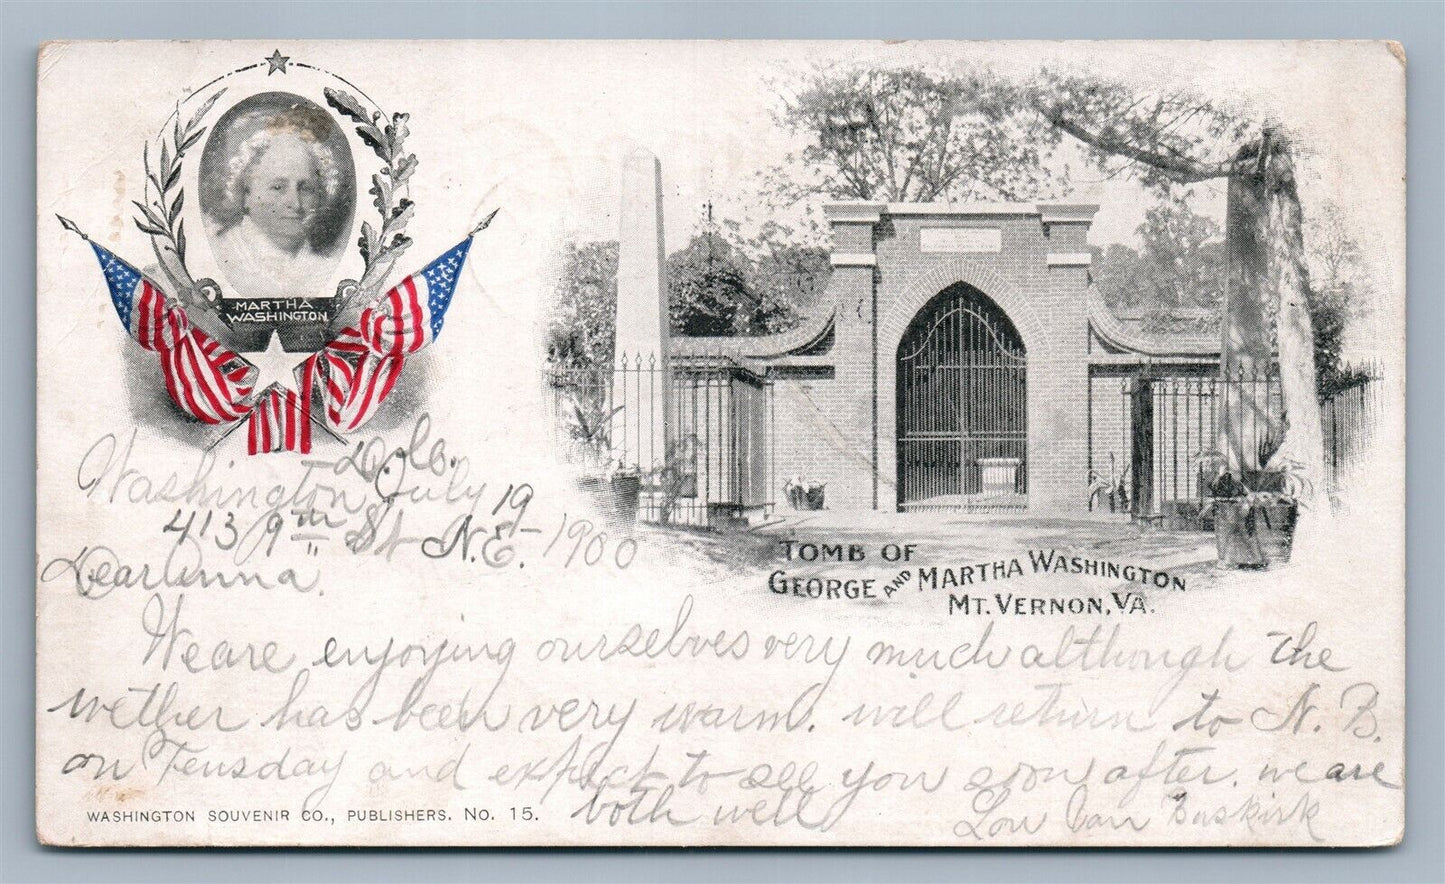 MARTHA
WASHINGTON
TOMB OF
GEORGE AND MARTHA WASHINGTON
MT. VERNON, VA.
Washington July 19
413 9th St N.E. 1900
Dear Anna.
We are enjoying ourselves very much although the
wether has been very warm. will return to N. B.
on Teusday and expect to see you soon after. we are
both well
Lou Van Buskirk
WASHINGTON SOUVENIR CO., PUBLISHERS. No. 15.